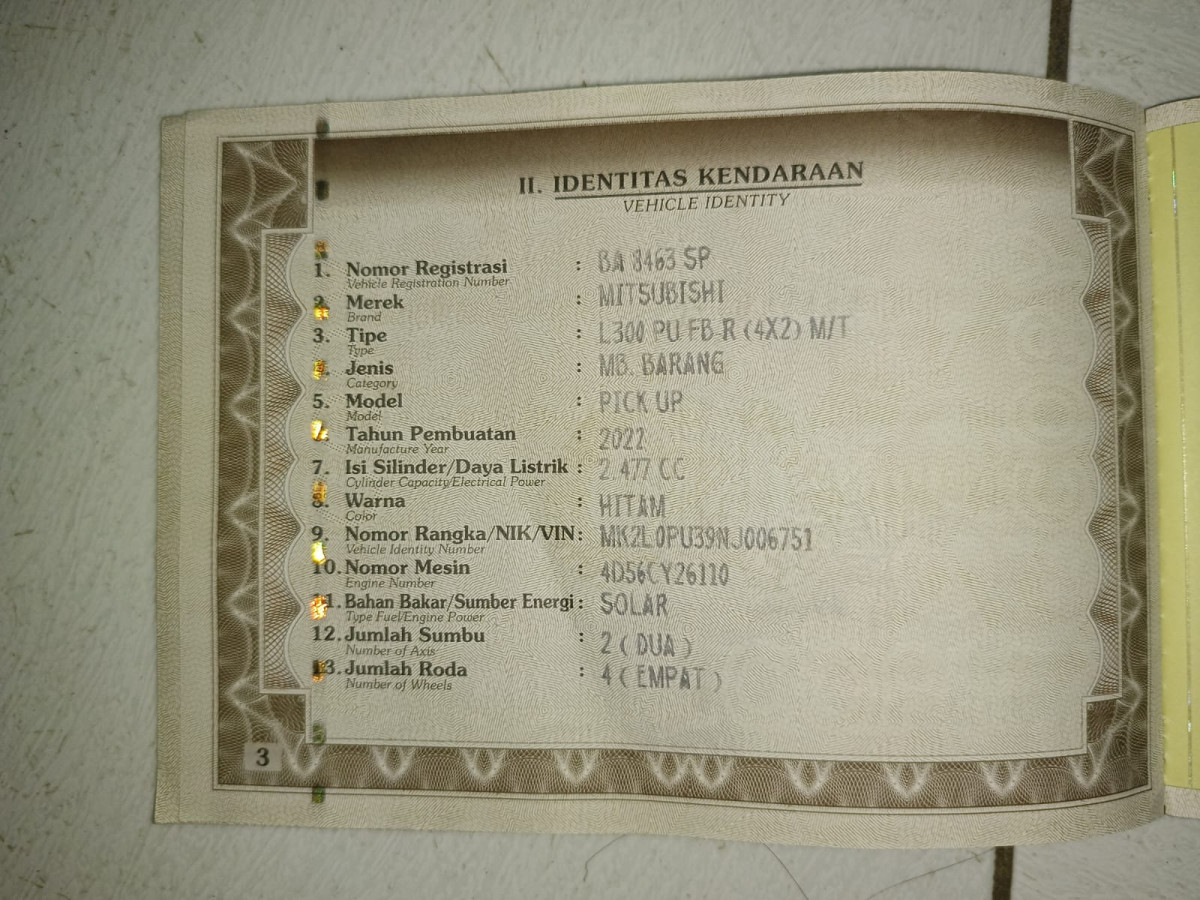 II. IDENTITAS KENDARAAN
VEHICLE IDENTITY
1. Nomor Registrasi : BA 8463 SP
Vehicle Registration Number
2. Merek : MITSUBISHI
Brand
3. Tipe : L300 PU FB-R (4X2) M/T
Type
4. Jenis : MB. BARANG
Category
5. Model : PICK UP
Model
6. Tahun Pembuatan : 2022
Manufacture Year
7. Isi Silinder/Daya Listrik : 2.477 CC
Cylinder Capacity/Electrical Power
8. Warna : HITAM
Color
9. Nomor Rangka/NIK/VIN : MK2L0PU39NJ006751
Vehicle Identity Number
10. Nomor Mesin : 4D56CY26110
Engine Number
11. Bahan Bakar/Sumber Energi : SOLAR
Type Fuel/Engine Power
12. Jumlah Sumbu : 2 ( DUA )
Number of Axis
13. Jumlah Roda : 4 ( EMPAT )
Number of Wheels
3